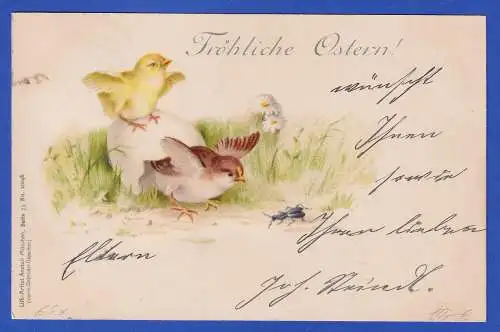 Fröhliche Ostern!
wünscht
Ihnen
sowie
Ihren lieben
Eltern
Jos.
Lith.-Artist. Anstalt München, Serie 73 No. 10098